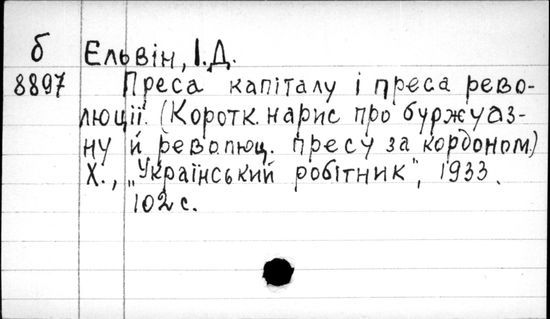 б Ельвін, І.Д.
8897 Преса капіталу і преса рево-
люції. (Коротк. нарис про буржуаз-
ну й революц. пресу за кордоном)
Х., „Український робітник", 1933.
102 с.